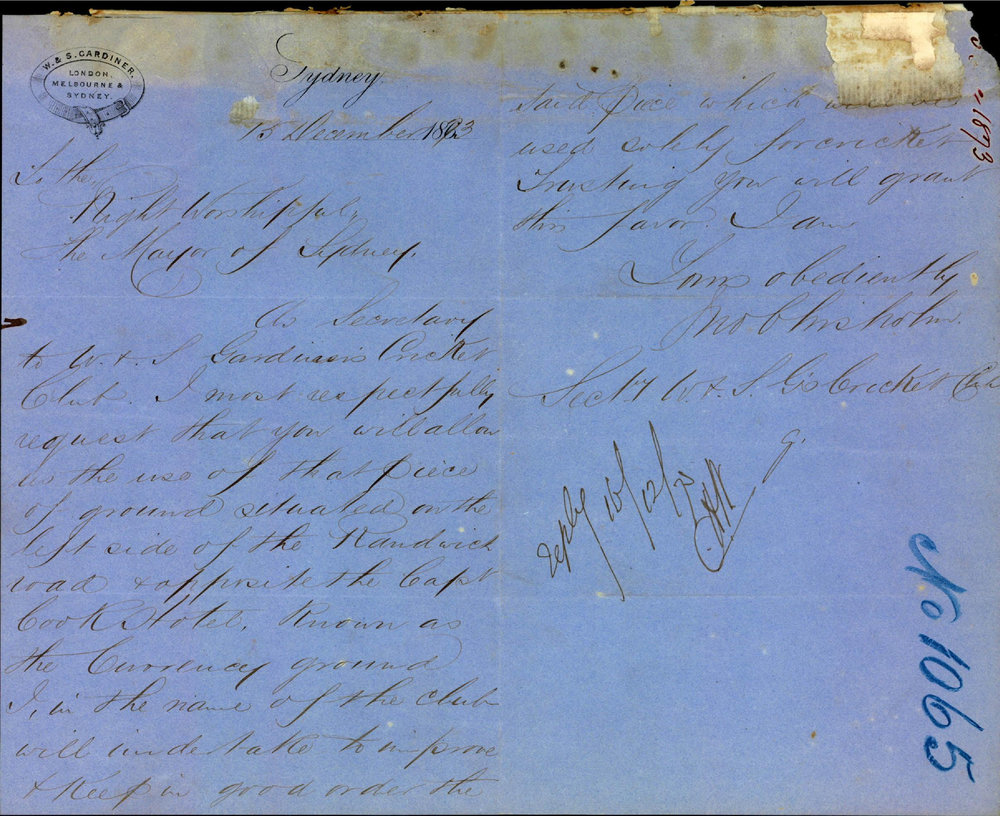 W. & S. GARDINER.
LONDON,
MELBOURNE &
SYDNEY.
Sydney,
15 December 1873
To the,
Right Worshipful,
The Mayor of Sydney,
As Secretary
to W. & S Gardiner's Cricket
Club. I most respectfully
request that you will allow
us the use of that piece
of ground situated on the
left side of the Randwick
road & opposite the Capt
Cook Hotel, Known as
the Currency ground
I, in the name of the club
will undertake to improve
& Keep in good order the
said piece which will be
used solely for cricket
Trusting you will grant
this favor. I am
Yours obediently
Jno Chisholm.
Secty W. & S. G's Cricket Club
reply 16/12/73
No 1065
1873